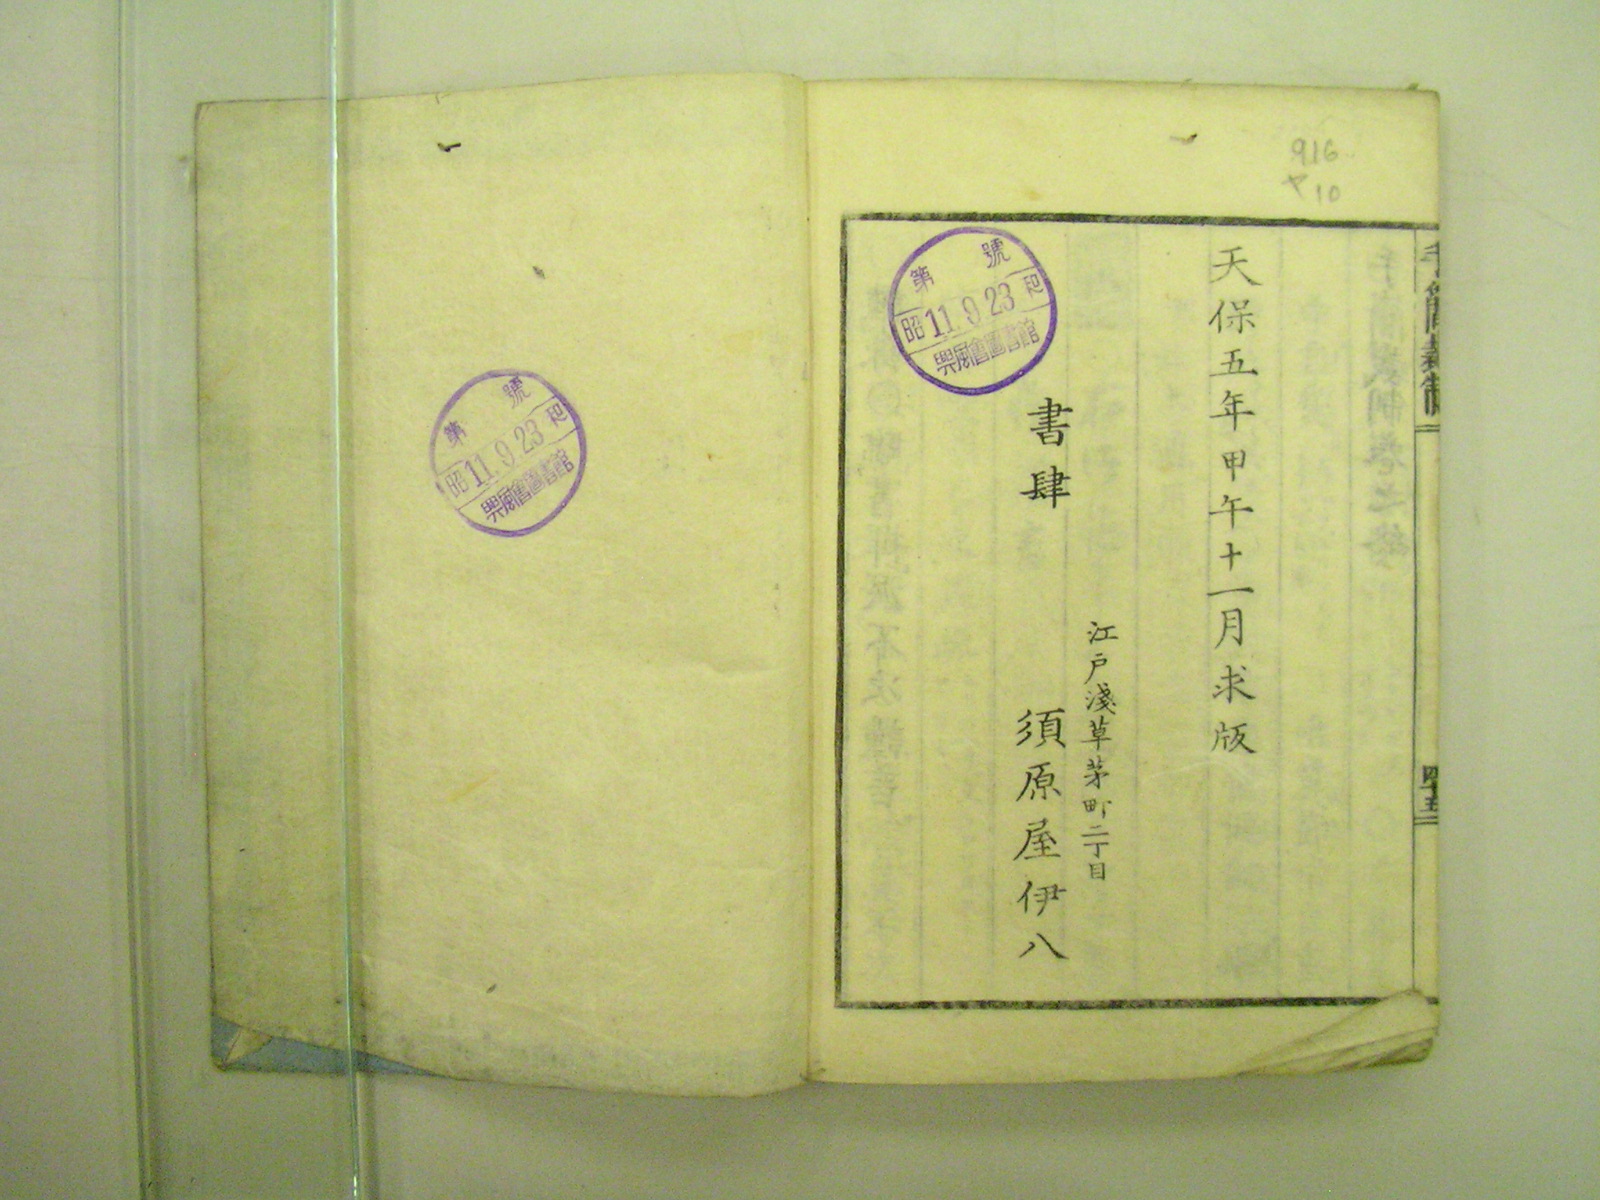 916
ヤ10
天保五年甲午十一月求版
江戸淺草茅町二丁目
書肆
須原屋伊八
第 號
昭 11.9.23 記
興風會圖書館
第 號
昭 11.9.23 記
興風會圖書館